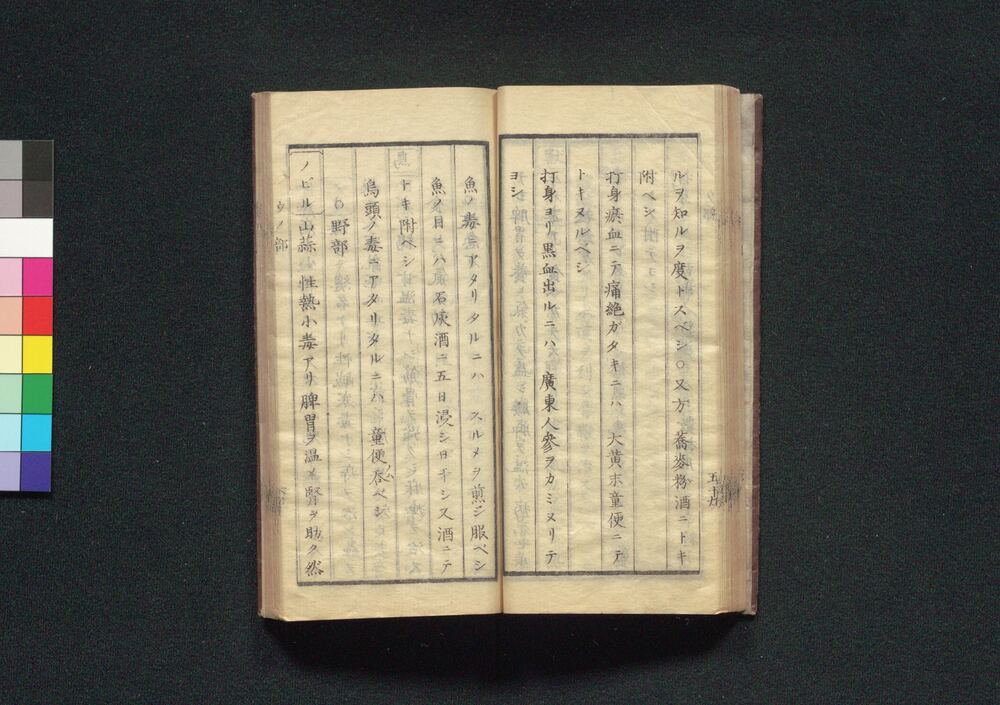 ルヲ知ルヲ度トスベシ○又方 蕎麥粉酒ニトキ
附ベシ
打身瘀血ニテ痛絶ガタキニハ 大黄末童便ニテ
トキヌルベシ
打身ヨリ黒血出ルニハ 廣東人參ヲカミヌリテ
ヨシ
五十九
魚ノ毒ニアタリタルニハ スルメヲ煎ジ服ベシ
魚ノ目ニハ 石灰酒ニ五日浸シ日干シ又酒ニテ
トキ附ベシ
烏頭ノ毒ニアタリタルニハ 童便呑ベシ
野部
ノビル 山蒜 性熱小毒アリ脾胃ヲ温メ腎ヲ助ク然
ウノ部